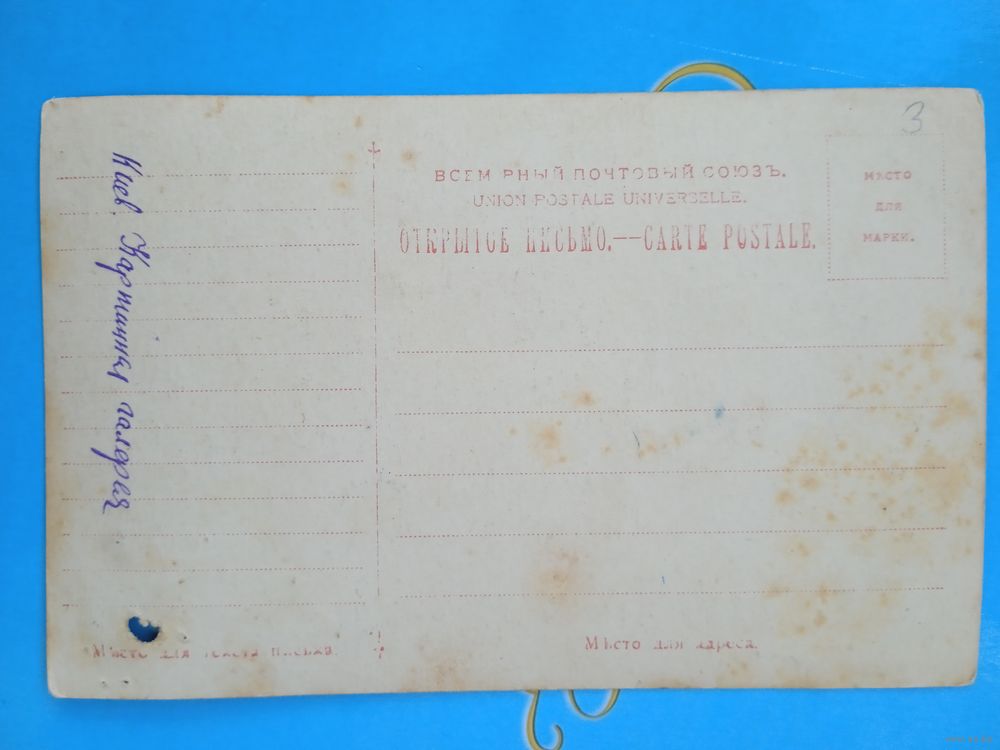 3
ВСЕМ РНЫЙ ПОЧТОВЫЙ СОЮЗЪ.
UNION POSTALE UNIVERSELLE.
ОТКРЫТОЕ ПИСЬМО.—CARTE POSTALE.
МѢСТО
ДЛЯ
МАРКИ.
Киев. Картинная галерея
Мѣсто для текста письма.
Мѣсто для адреса.